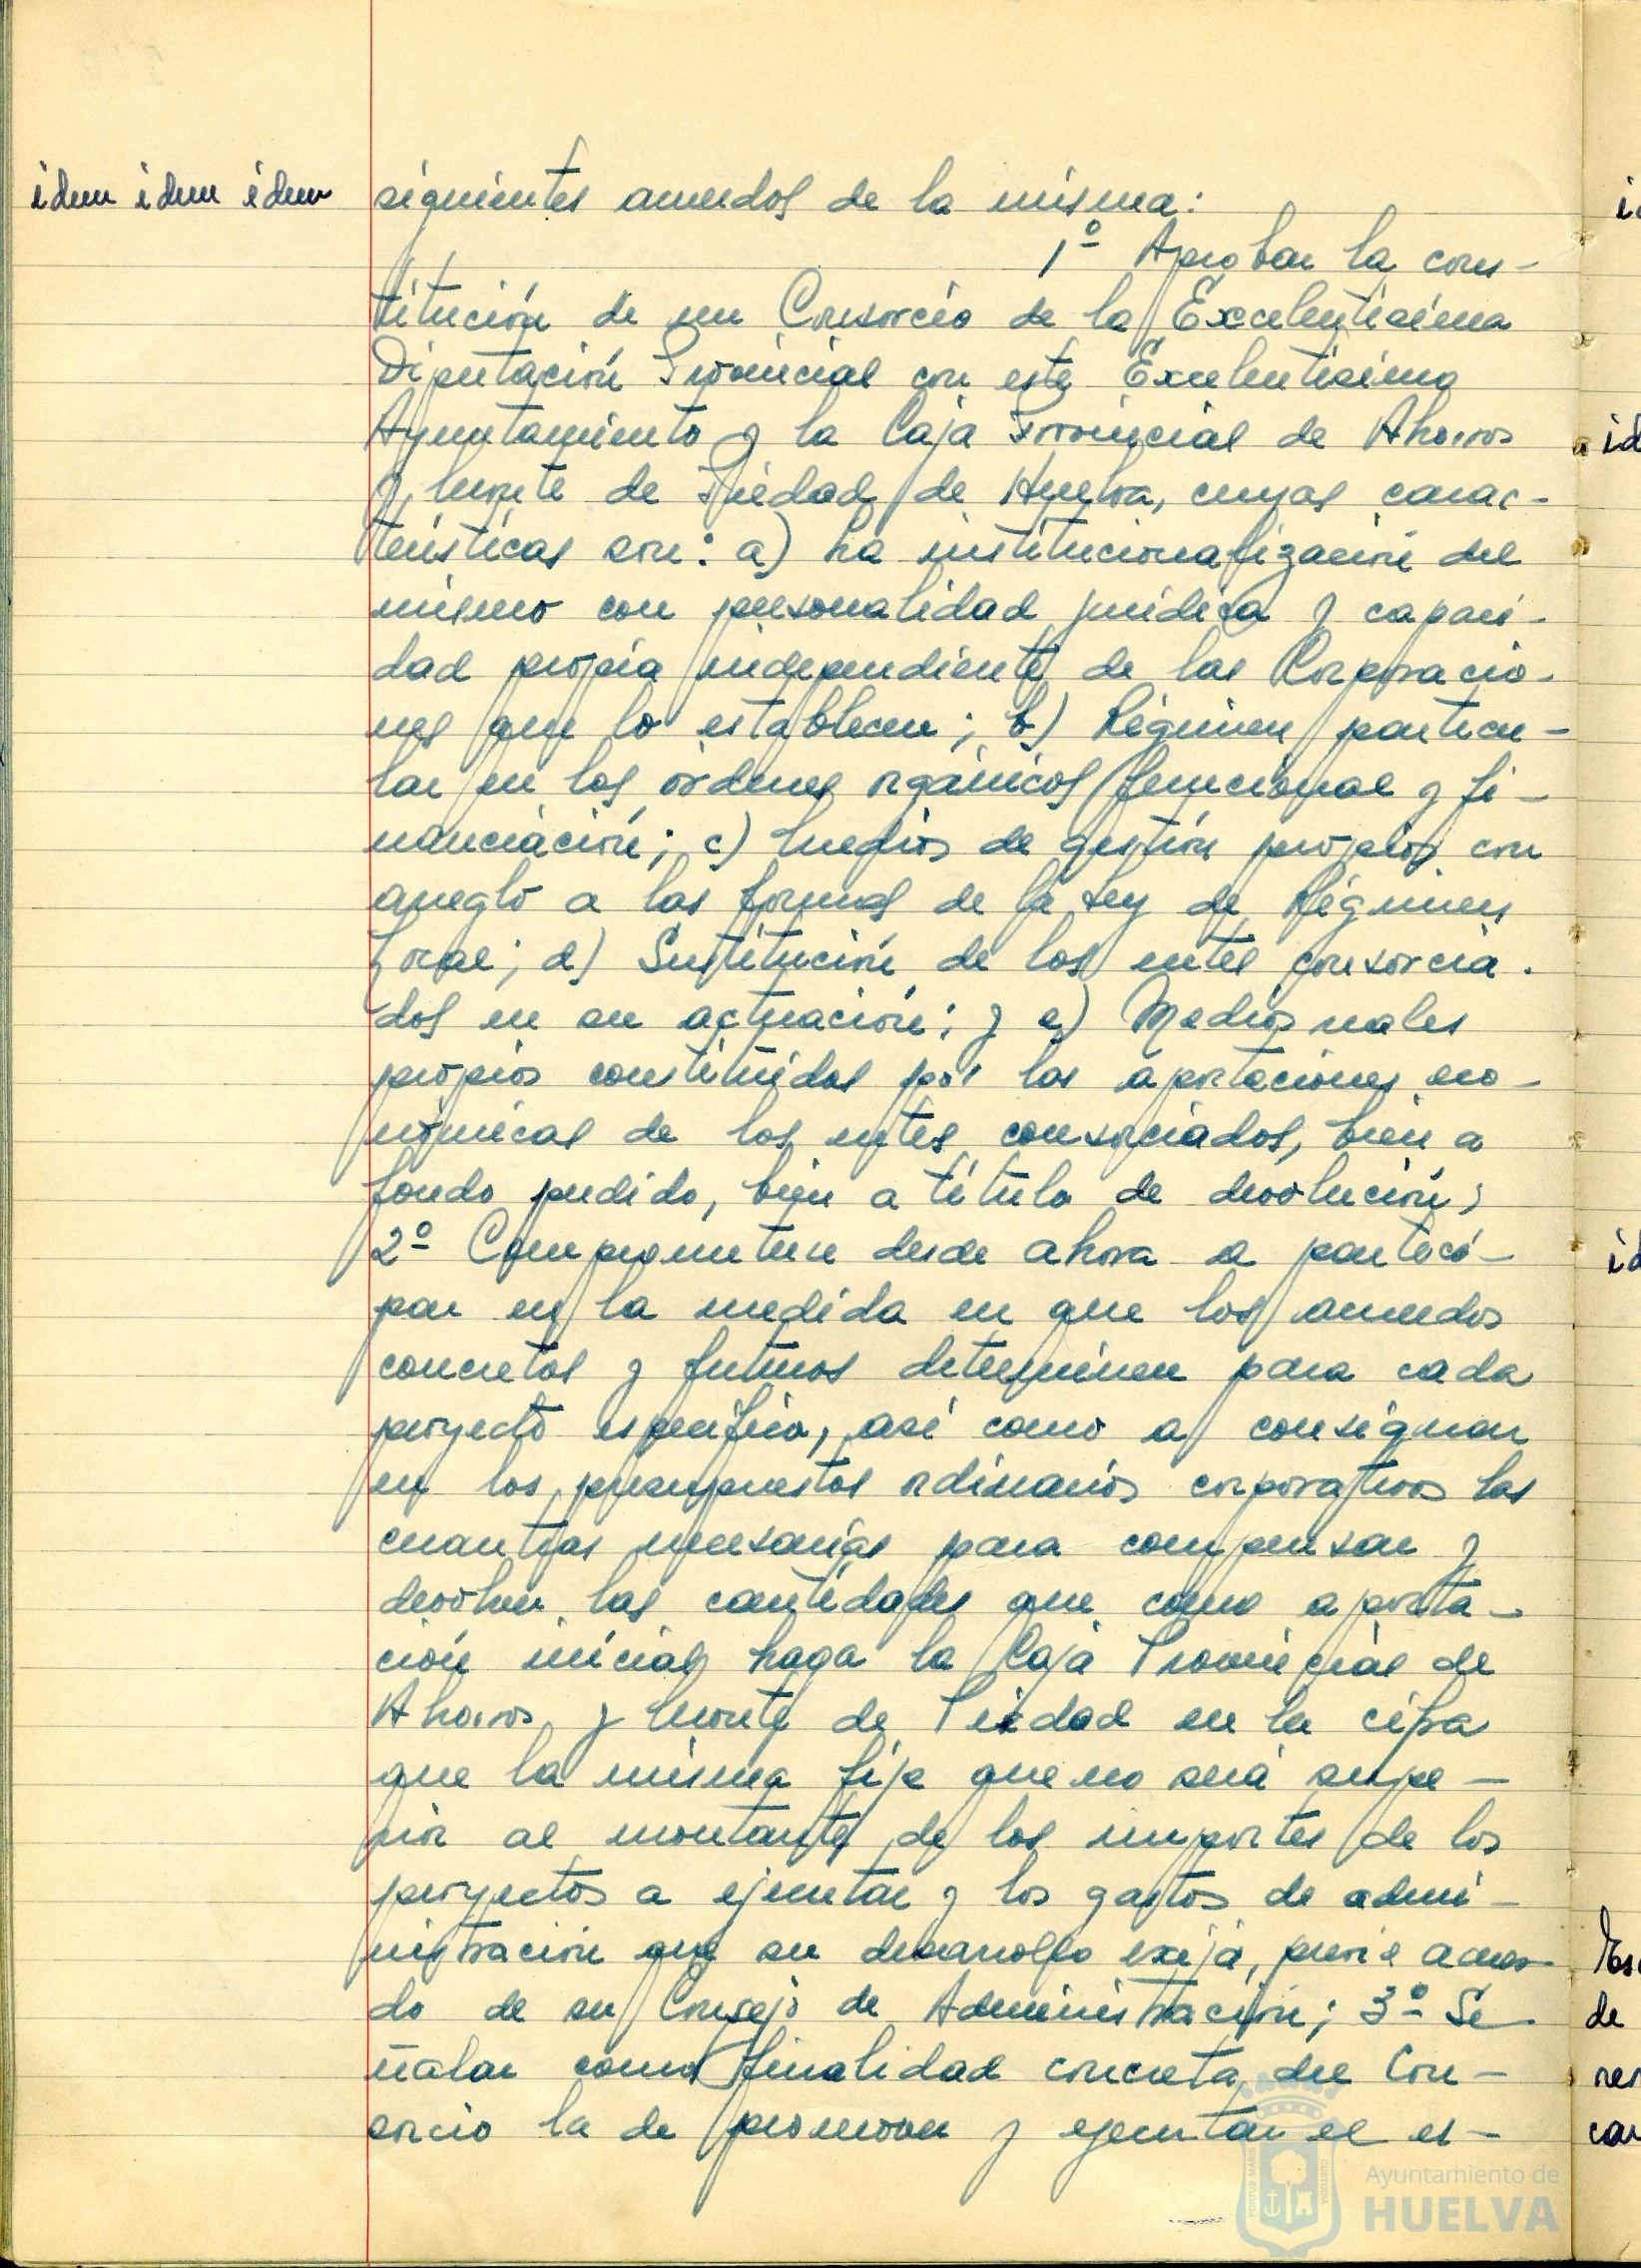 idem idem idem
siguientes acuerdos de la misma:
1º Aprobar la cons-
titución de un Consorcio de la Excelentísima
Diputación Provincial con este Excelentísimo
Ayuntamiento y la Caja Provincial de Ahorros
y Monte de Piedad de Huelva, cuyas carac-
terísticas son: a) La institucionalización del
mismo con personalidad jurídica y capaci-
dad propia independiente de las Corporacio-
nes que lo establecen; b) Régimen particu-
lar en los órdenes orgánicos funcional y fi-
nanciación; c) Medios de gestión propios con
arreglo a las formas de la Ley de Régimen
Local; d) Sustitución de los entes consorcia-
dos en su actuación; y e) Medios reales
propios constituidos por las aportaciones eco-
nómicas de los entes consorciados, bien a
fondo perdido, bien a título de devolución;
2º Comprometerse desde ahora a partici-
par en la medida en que los acuerdos
concretos y futuros determinen para cada
proyecto específico, así como a consignar
en los presupuestos ordinarios corporativos las
cuantías necesarias para compensar y
devolver las cantidades que como aporta-
ción inicial haga la Caja Provincial de
Ahorros y Monte de Piedad en la cifra
que la misma fije que no será supe-
rior al montante de los importes de los
proyectos a ejecutar y los gastos de admi-
nistración que su desarrollo exija, previo acuer-
do de su Consejo de Administración; 3º Se-
ñalar como finalidad concreta del Con-
sorcio la de promover y ejecutar el es-
id
id
de
Ayuntamiento de
HUELVA
PORTUS MARIS
CUSTODIA